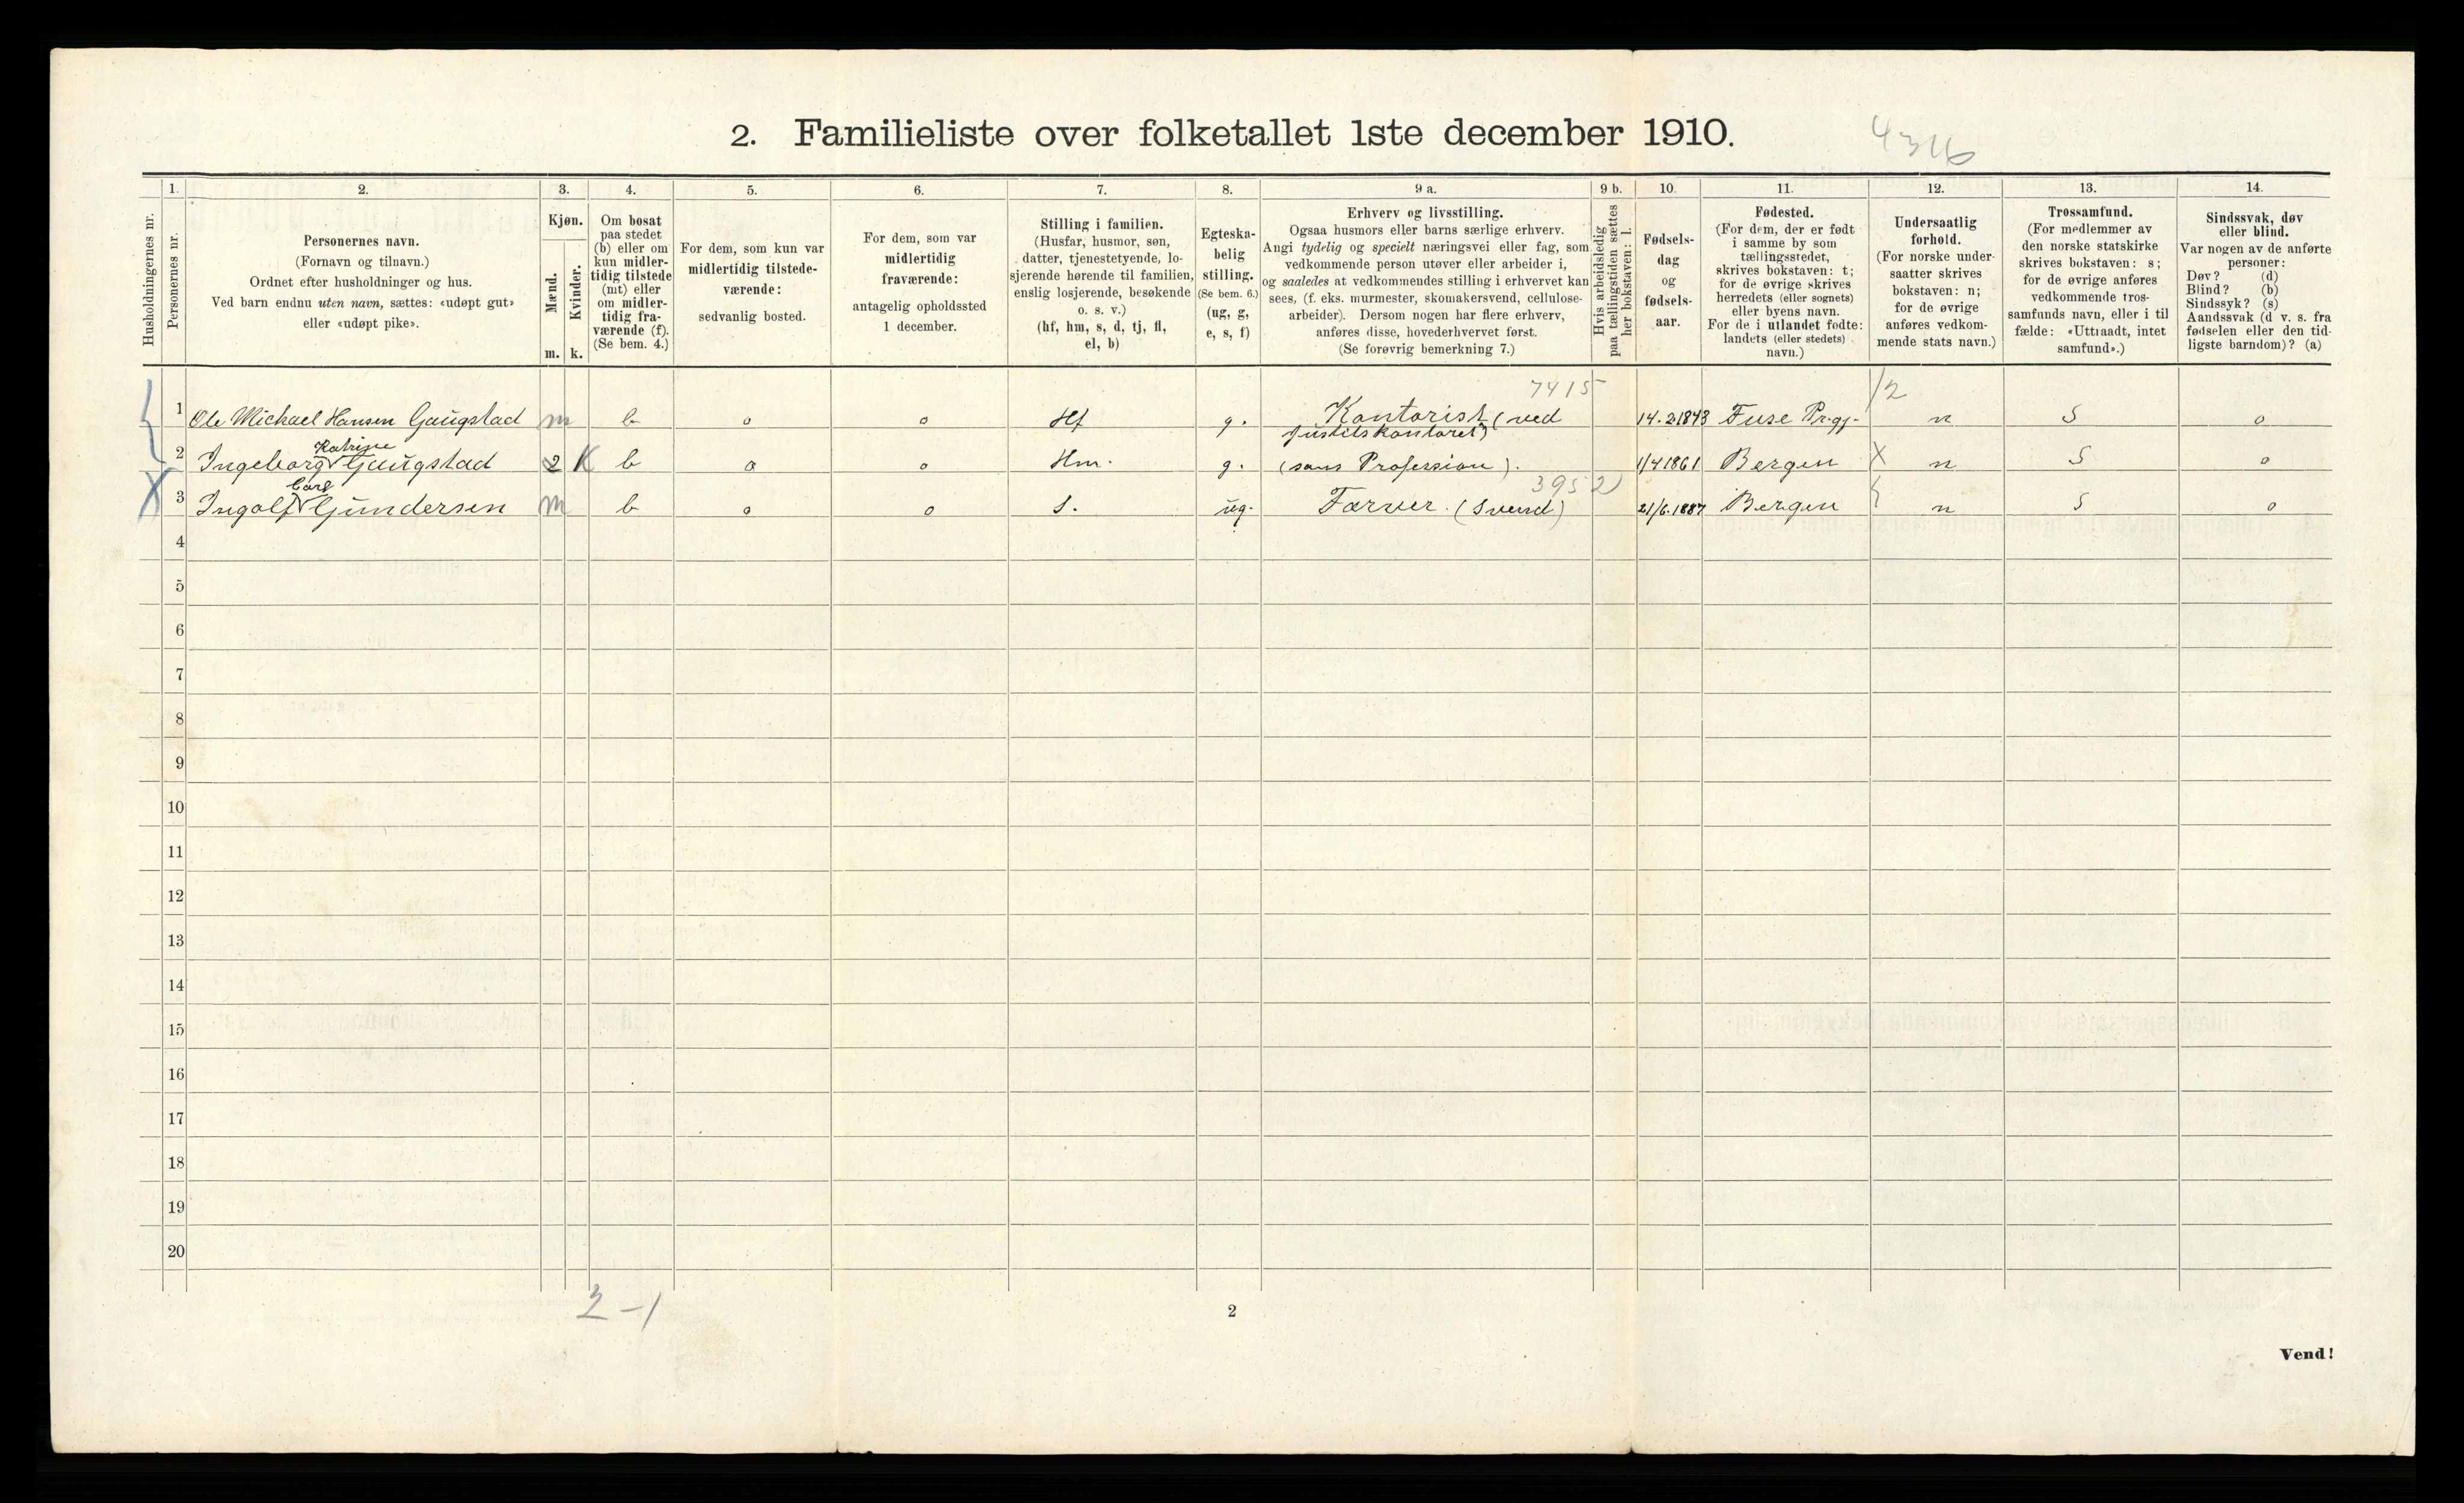 2. Familieliste over folketallet 1ste december 1910.
Husholdningernes nr.
1.
Personernes nr.
2.
Personernes navn.
(Fornavn og tilnavn.)
Ordnet efter husholdninger og hus.
Ved barn endnu uten navn, sættes: «udøpt gut»
eller «udøpt pike».
3.
Kjøn.
Mænd.
Kvinder.
m. k.
4.
Om bosat
paa stedet
(b) eller om
kun midler-
tidig tilstede
(mt) eller
om midler-
tidig fra-
værende (f).
(Se bem. 4.)
5.
For dem, som kun var
midlertidig tilstede-
værende:
sedvanlig bosted.
6.
For dem, som var
midlertidig
fraværende:
antagelig opholdssted
1 december.
7.
Stilling i familien.
(Husfar, husmor, søn,
datter, tjenestetyende, lo-
sjerende hørende til familien,
enslig losjerende, besøkende
o. s. v.)
(hf, hm, s, d, tj, fl,
el, b)
8.
Egteska-
belig
stilling.
(Se bem. 6.)
(ug, g,
e, s, f)
9 a.
Erhverv og livsstilling.
Ogsaa husmors eller barns særlige erhverv.
Angi tydelig og specielt næringsvei eller fag, som
vedkommende person utøver eller arbeider i,
og saaledes at vedkommendes stilling i erhvervet kan
sees, (f. eks. murmester, skomakersvend, cellulose-
arbeider). Dersom nogen har flere erhverv,
anføres disse, hovederhvervet først.
(Se forøvrig bemerkning 7.)
9 b.
Hvis arbeidsledig
paa tællingstiden sættes
her bokstaven: l.
10.
Fødsels-
dag
og
fødsels-
aar.
11.
Fødested.
(For dem, der er født
i samme by som
tællingsstedet,
skrives bokstaven: t;
for de øvrige skrives
herredets (eller sognets)
eller byens navn.
For de i utlandet fødte:
landets (eller stedets)
navn.)
12.
Undersaatlig
forhold.
(For norske under-
saatter skrives
bokstaven: n;
for de øvrige
anføres vedkom-
mende stats navn.)
13.
Trossamfund.
(For medlemmer av
den norske statskirke
skrives bokstaven: s;
for de øvrige anføres
vedkommende tros-
samfunds navn, eller i til
fælde: «Uttraadt, intet
samfund».)
14.
Sindssvak, døv
eller blind.
Var nogen av de anførte
personer:
Døv? (d)
Blind? (b)
Sindssyk? (s)
Aandssvak (d v. s. fra
fødselen eller den tid-
ligste barndom)? (a)
7415 /2
1 Ole Michael Hansen Gaugstad m b o o Hf g. Kontorist (ved 14.2 1843 Fuse Prgj. n S o
Justitskontoret)
Katrine
2 Ingeborg Gaugstad 2 K b o o Hm. g. (sans Profession). 1/4 1861 Bergen X n S o
Carl 3952
3 Ingolf Gundersen m b o o s. ug. Farver. (Svend) 21/6.1887 Bergen n S o
4
5
6
7
8
9
10
11
12
13
14
15
16
17
18
19
20
2 - 1
2
Vend!